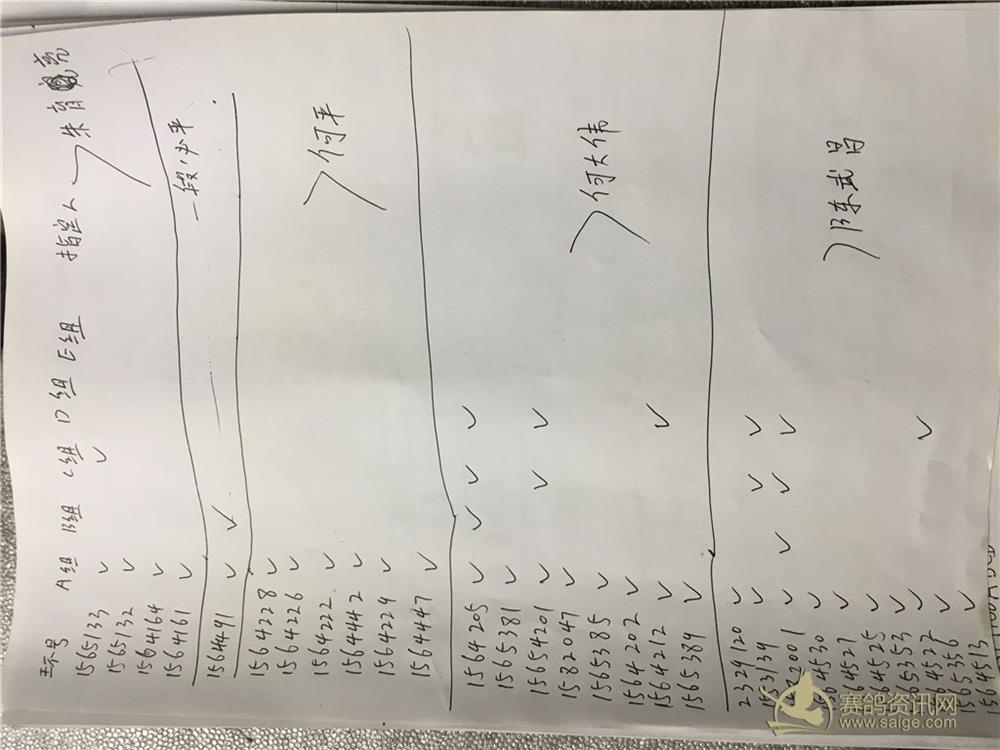 环号 A组 B组 C组 D组 E组 指定人
1565133 ✓ ✓
1565132 ✓
1564164 ✓
1564161 ✓
>朱育亮
1564491 ✓ ✓ 一段
1564228 ✓
1564226 ✓
1564222 ✓
1564442 ✓
1564224 ✓
1564447 ✓
>何平
1564205 ✓ ✓ ✓ ✓
1565381 ✓
1564201 ✓ ✓ ✓
1582047 ✓
1565385 ✓
1564202 ✓
1564212 ✓ ✓
1565389 ✓
>何大伟
2329120 ✓
✓ ✓ ✓
✓ ✓ ✓ ✓
1564530 ✓
✓
✓
✓
✓ ✓
✓
1564513 ✓
>陈武昌
赛鸽资讯网
www.saige.com